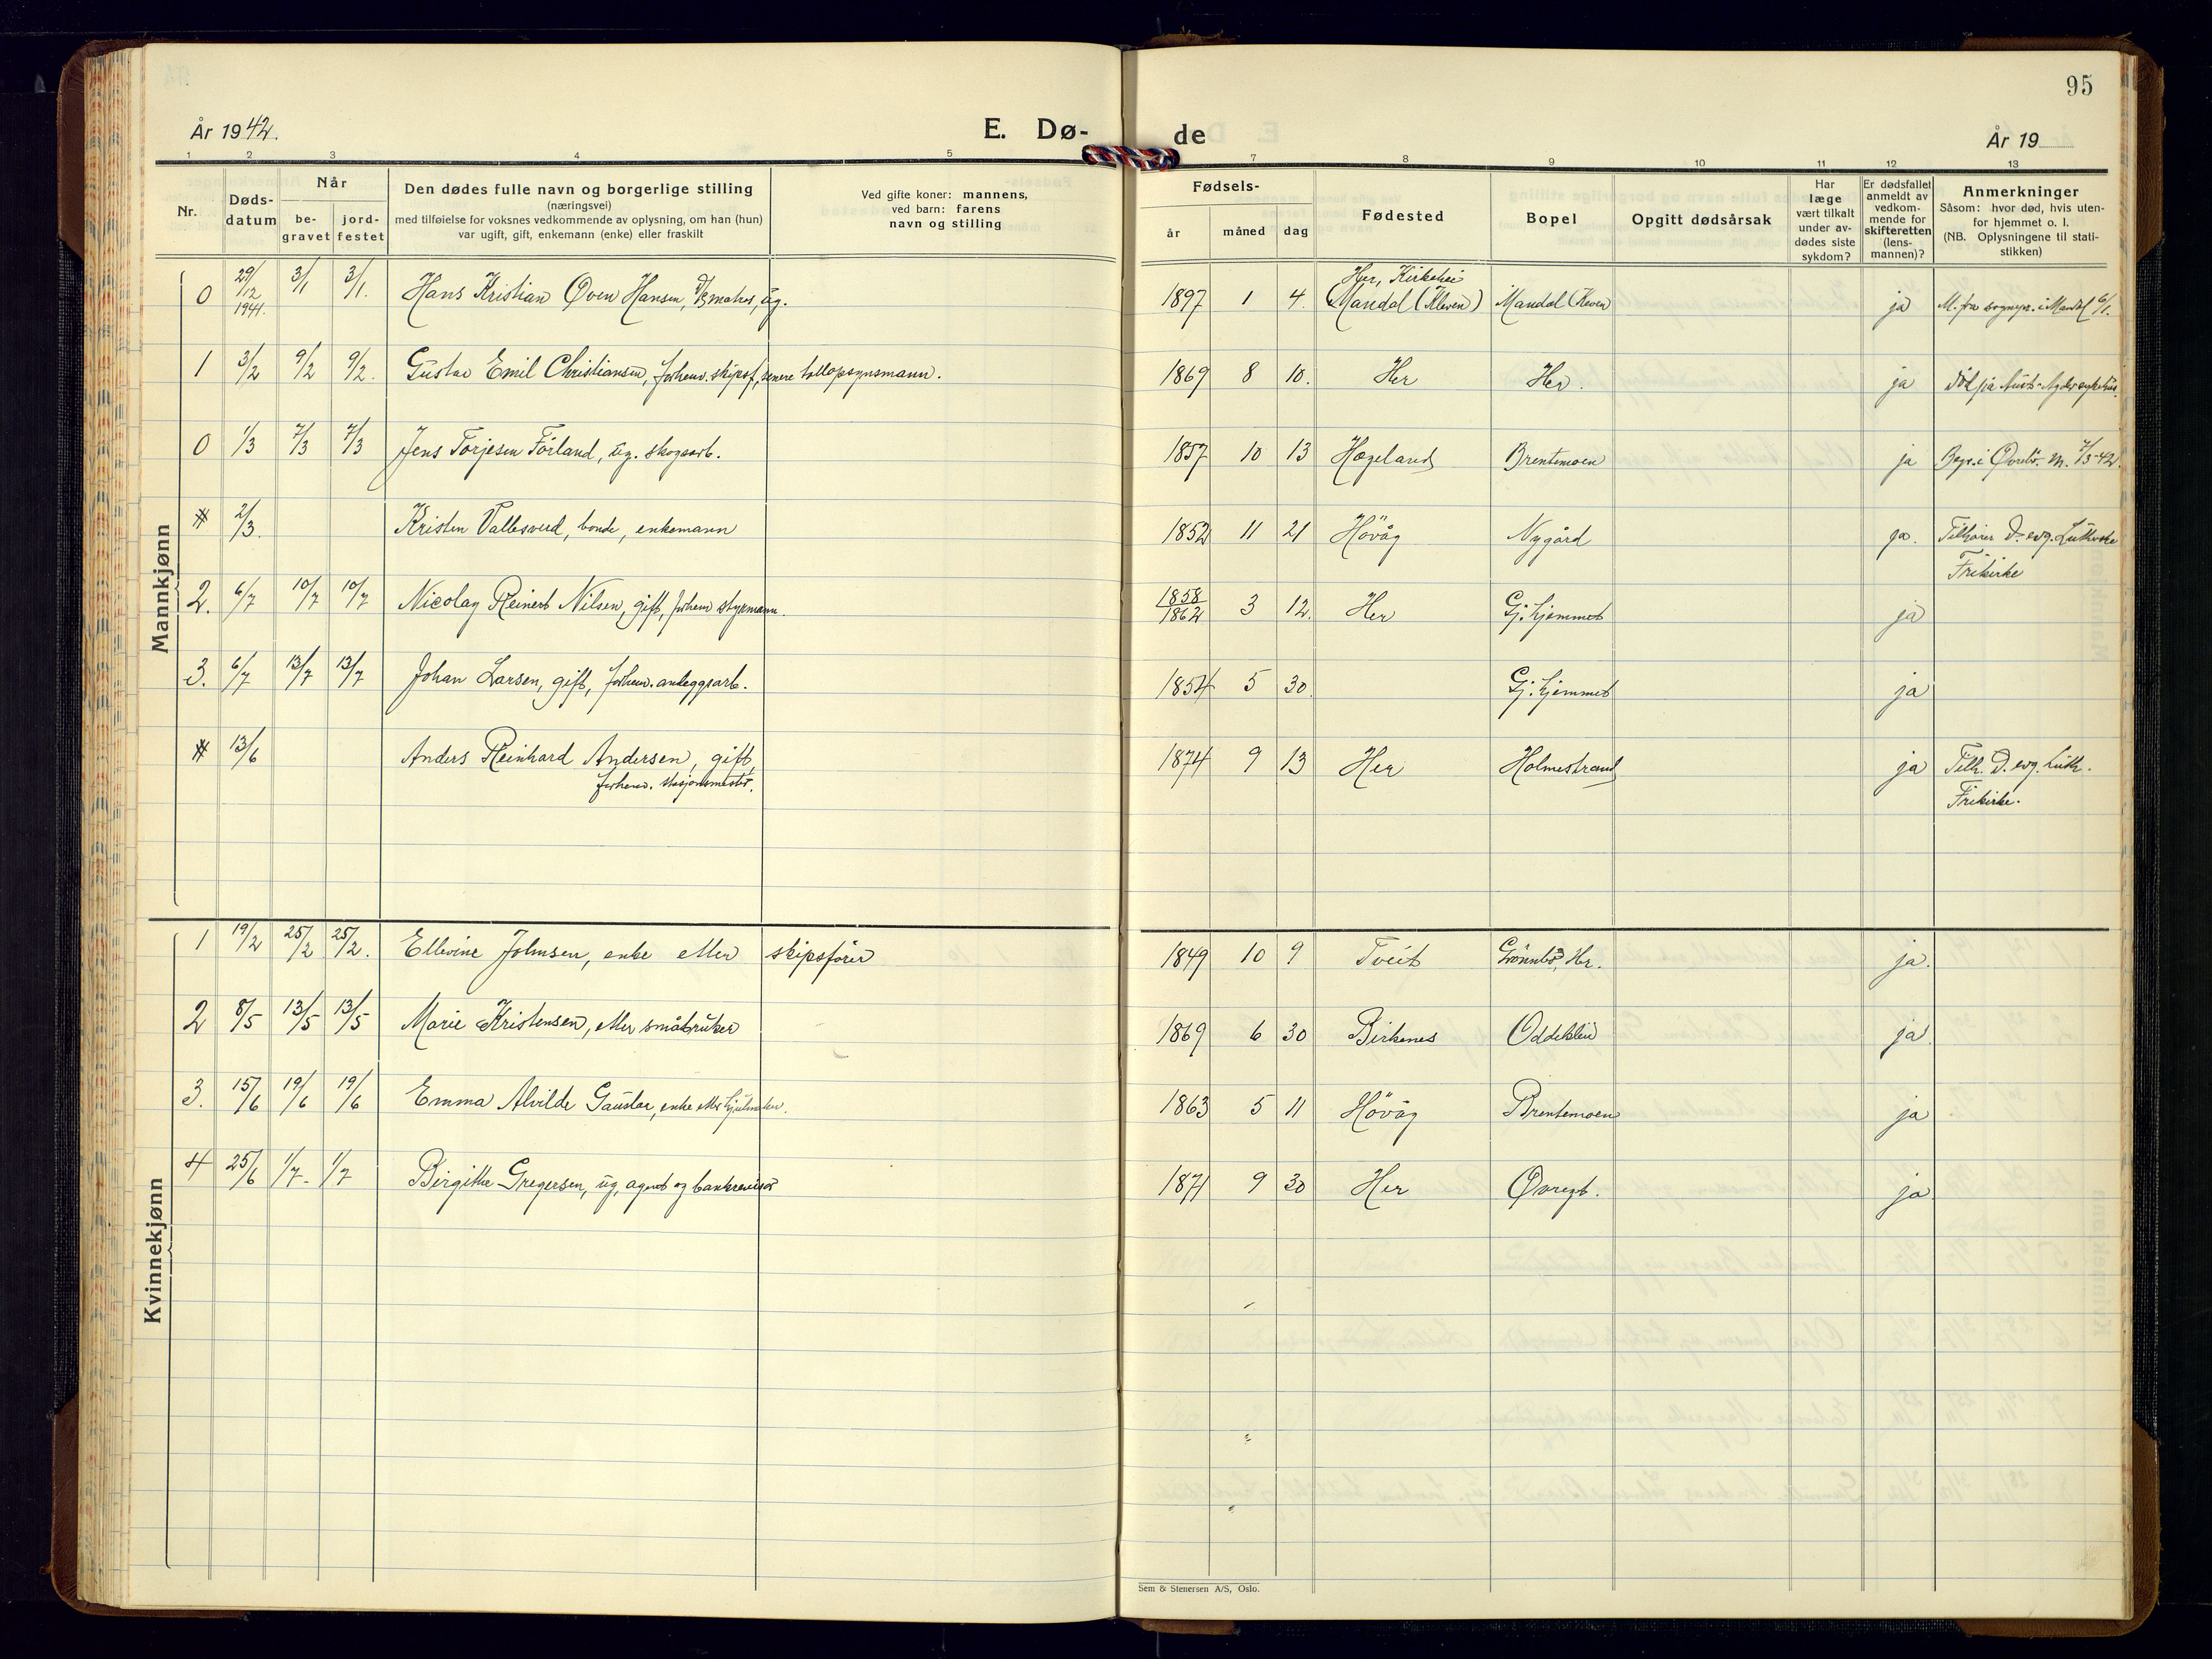 95
År 1942.
E. Dø-
de
År 19
1 2 3 4 5 7 8 9 10 11 12 13
Nr.
Døds-
datum
Når
be-
gravet
jord-
festet
Den dødes fulle navn og borgerlige stilling
(næringsvei)
med tilføielse for voksnes vedkommende av oplysning, om han (hun)
var ugift, gift, enkemann (enke) eller fraskilt
Ved gifte koner: mannens,
ved barn: farens
navn og stilling
Fødsels-
år
måned
dag
Fødested
Bopel
Opgitt dødsårsak
Har
læge
vært tilkalt
under av-
dødes siste
sykdom?
Er dødsfallet
anmeldt av
vedkom-
mende for
skifteretten
(lens-
mannen)?
Anmerkninger
Såsom: hvor død, hvis uten-
for hjemmet o. l.
(NB. Oplysningene til stati-
stikken)
Mannkjønn
0 29/12 1941. 3/1 3/1. Hans Kristian Øven Hansen, matros, ug. 1897 1 4. Her, Kirkehei
Mandal (Kleven) Mandal (Kleven ja M. fra sognepr. i Mandal 6/1.
1 3/2 9/2 9/2. Gustav Emil Christiansen, forhenv. skipsf., senere tollopsynsmann. 1869 8 10. Her Her. ja død på Aust-Agder sykehus.
0 1/3 7/3 7/3 Jens Torjesen Förland, ug. skogsarb. 1857 10 13 Hægeland Brentemoen ja Begr. i Øvrebö. M. 7/3-42.
# 2/3. Kristen Vallesverd, bonde, enkemann 1852 11 21 Hövåg Nygård ja. Tilhører D. evg. Lutherske
Frikirke
2. 6/7 10/7 10/7 Nicolay Reinert Nilsen, gift, forhenv styrmann. 1858/1862 3 12. Her Gj. hjemmet ja
3. 6/7 13/7 13/7 Johan Larsen, gift, forhenv. anleggsarb. 1854 5 30. Gj. hjemmet ja
# 13/6 Anders Reinhard Andersen, gift,
forhenv. stasjonsmester. 1874 9 13 Her Holmestrand ja Tilh. D. evg. Luth.
Frikirke.
Kvinnekjønn
1 19/2 25/2 25/2. Ellevine Johnsen, enke etter skipsfører 1849 10 9 Tveit Grönnbö, Her. ja.
2 8/5 13/5 13/5 Marie Kristensen, etter småbruker 1869 6 30 Birkenes Oddeklein ja
3. 15/6 19/6 19/6 Emma Alvilde Gaustar, enke etter hjulmaker. 1863 5 11 Hövåg Brentemoen ja
4 25/6 1/7- 1/7 Birgitte Gregersen, ug, agent og bankrevisor 1871 9 30 Her Øvregt. ja
Sem & Stenersen A/S, Oslo.